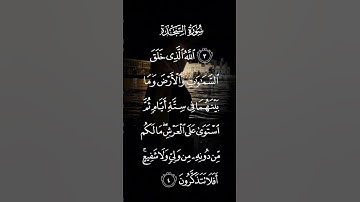 سُورَةُ السَّجْدَةِ
٣ ٱللَّهُ ٱلَّذِى خَلَقَ
ٱلسَّمَٰوَٰتِ وَٱلْأَرْضَ وَمَا
بَيْنَهُمَا فِى سِتَّةِ أَيَّامٍ ثُمَّ
ٱسْتَوَىٰ عَلَى ٱلْعَرْشِ ۖ مَا لَكُم
مِّن دُونِهِۦ مِن وَلِىٍّ وَلَا شَفِيعٍ ۚ
أَفَلَا تَتَذَكَّرُونَ ٤